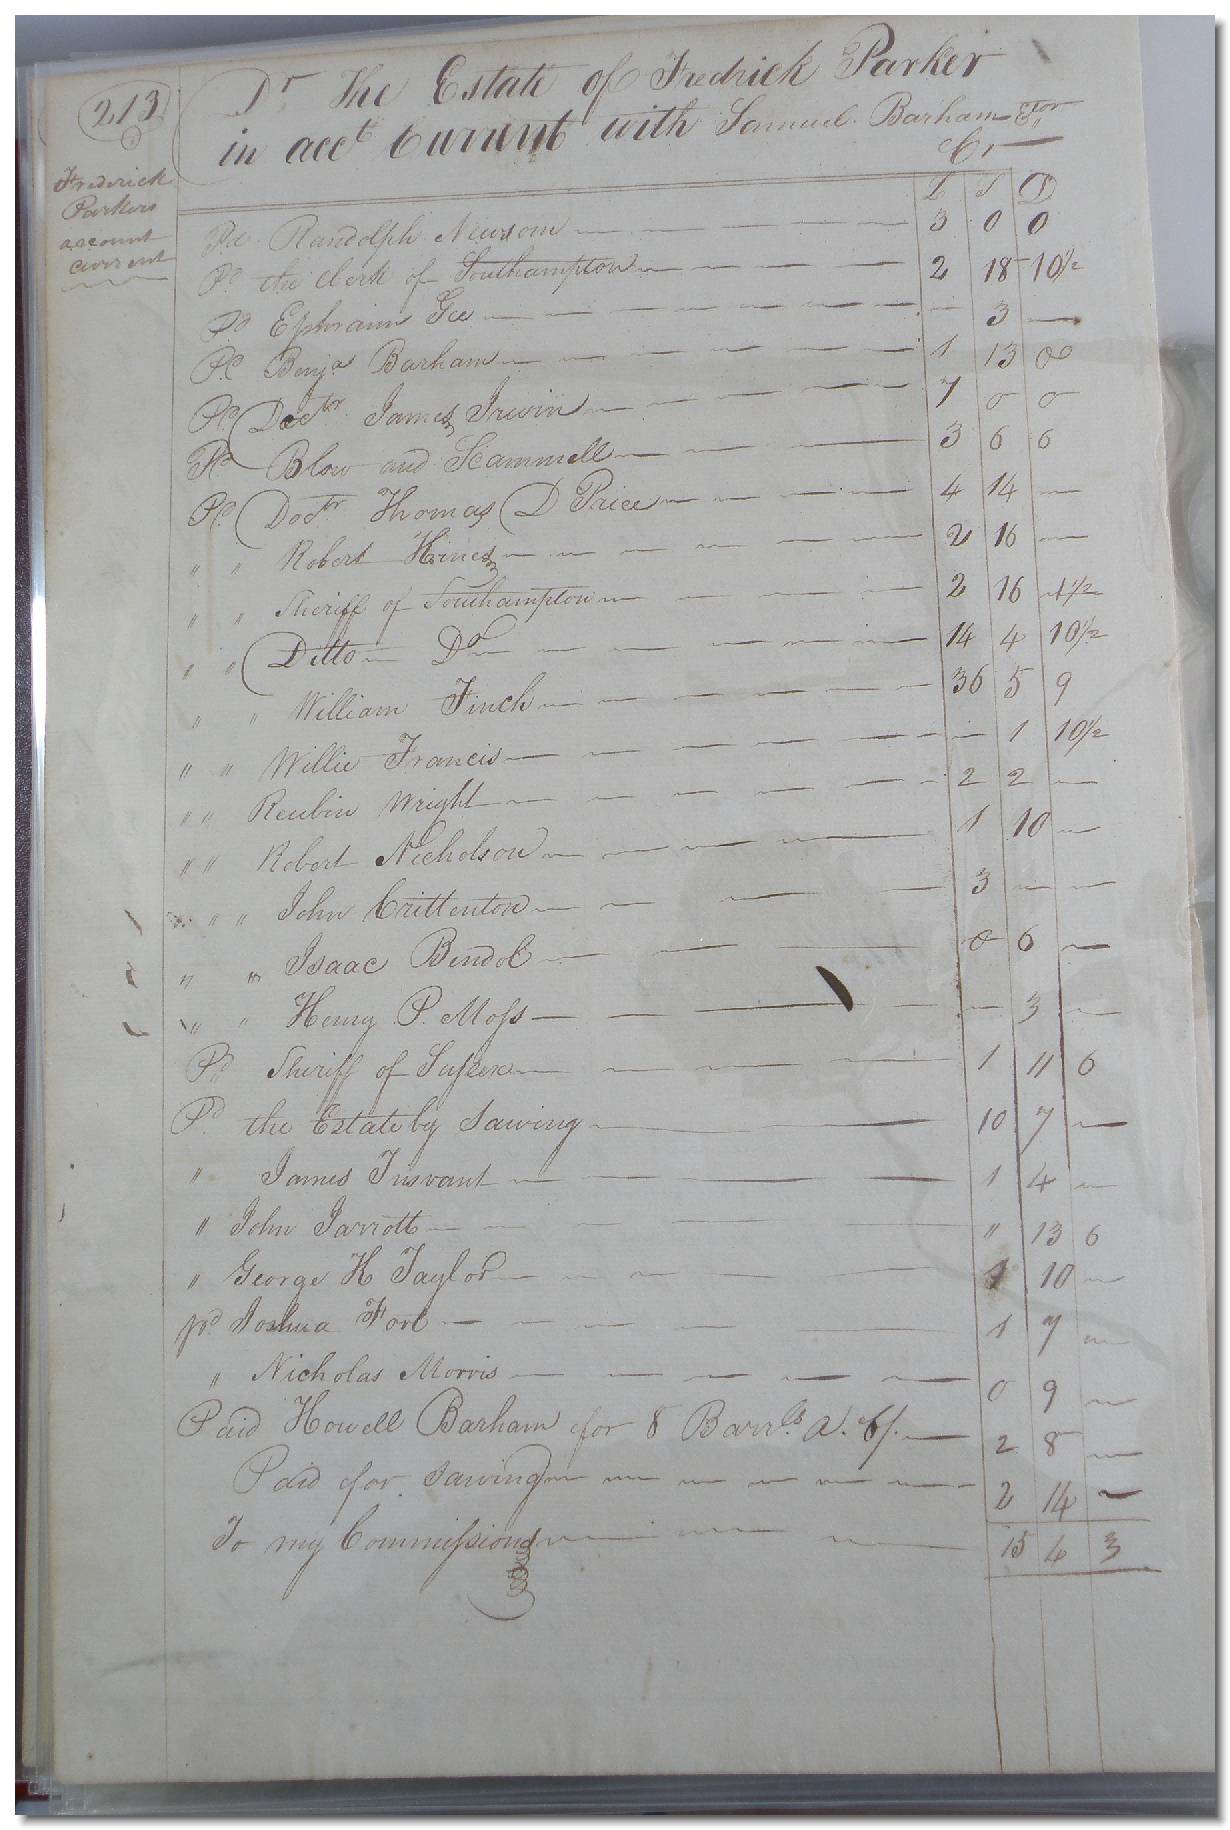 213
Frederick
Parkers
account
current
Dr The Estate of Fredrick Parker
in acct Current with Samuel Barham Extor
Cr
L S D
Pd Randolph Newsom 3 0 0
Pd the Clerk of Southampton 2 18 10½
Pd Ephraim Gee — 3 —
Pd Benja Barham 1 13 00
Pd Doctr James Irwin 7 0 0
Pd Blow and Scammell 3 6 6
Pd Doctr Thomas D Price 4 14 —
" " Robert Hines 2 16 —
" " Sheriff of Southampton 2 16 4½
" " Ditto Do 14 4 10½
" " William Finch 36 5 9
" " Willie Francis — 1 10½
" " Reubin Wright 2 2 —
" " Robert Nicholson 1 10 —
" " John Crittenton 3 — —
" " Isaac Bendol 0 6 —
" " Henry P. Moss — 3 —
Pd Sheriff of Sussex 1 11 6
Pd the Estate by Sawing 10 7 —
" James Tusvant 1 4 —
" John Jarrott " 13 6
" George K Taylor 1 10 —
pd Joshua Fort 1 7 —
" Nicholas Morris 0 9 —
Paid Howell Barham for 8 Barrls a. 6/. 2 8 —
Paid for Sawing 2 14 —
To my Commissions 15 4 3